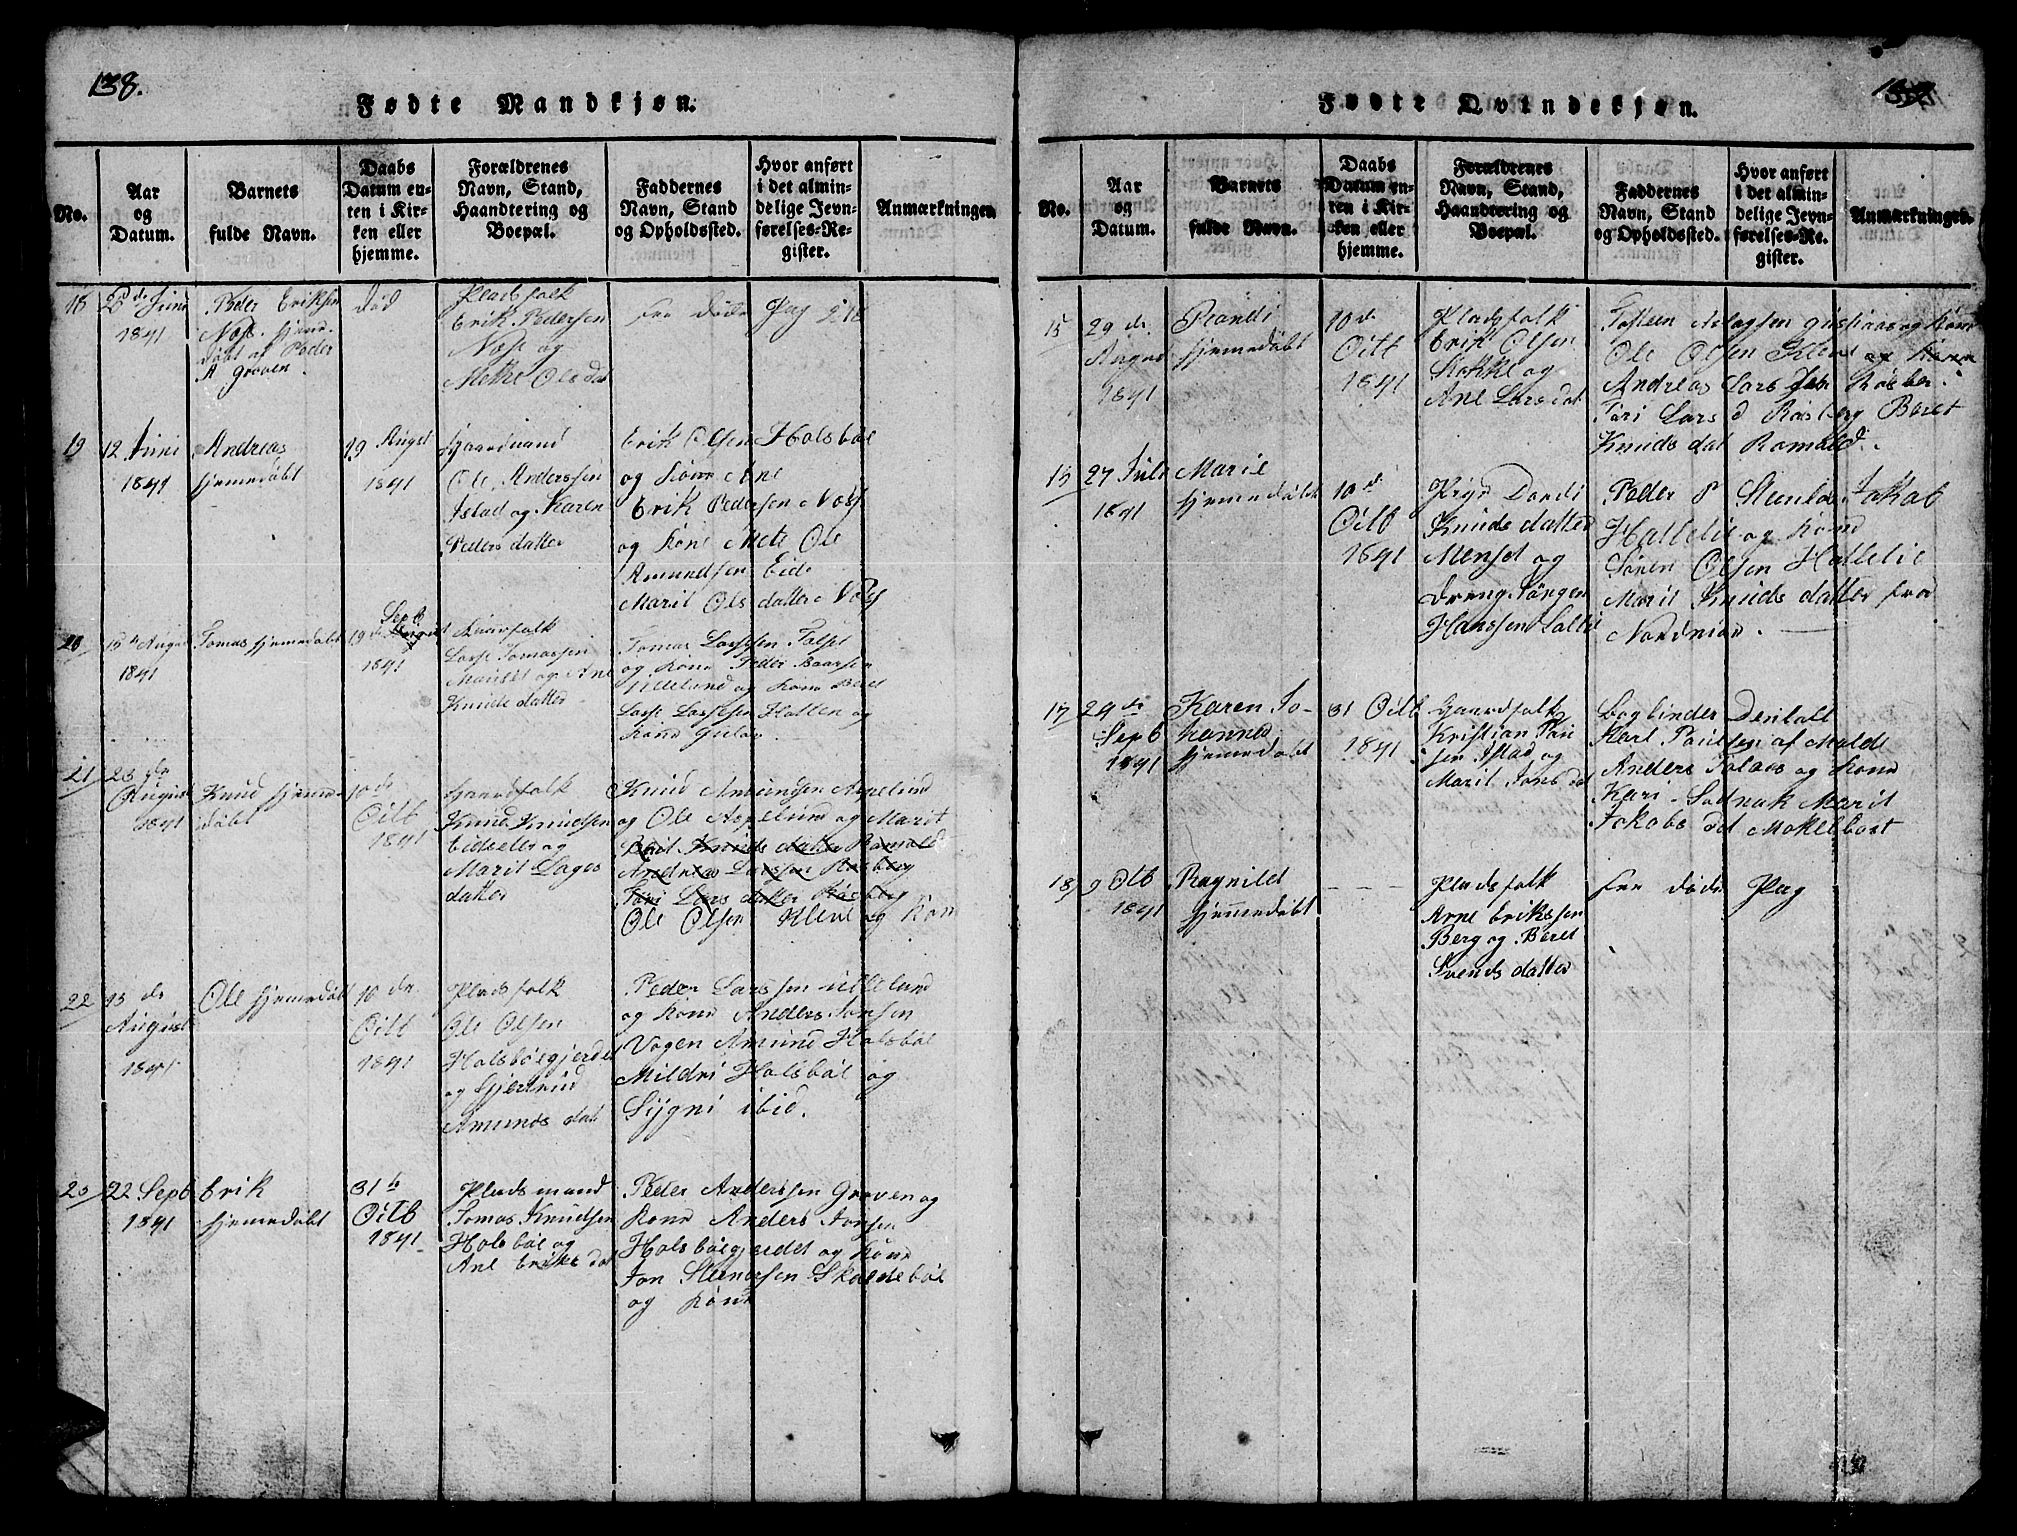 138.
Fødte Mandkjøn.
No.
Aar
og
Datum.
Barnets
fulde Navn.
Daabs
Datum en-
ten i Kir-
ken eller
hjemme.
Forældrenes
Navn, Stand,
Haandtering og
Boepæl.
Faddernes
Navn, Stand
og Opholdssted.
Hvor anført
i det almin-
delige Jevn-
førelses-Re-
gister.
Anmærkninger
18
Juni
1841
Peder Eriksen
Noss. hjem.
døbt af Peder
A Groven.
død
Pladsfolk
Erik Pedersen
Noss og
Mette Olsdat
see døde Pag 218
19
12 Juni
1841
Andreas
hjemedøbt
29 August
1841
Gaardmand
Ole Anderssen
Istad og Karen
Pedersdatter
Erik Olsen Holsbøe
og Kone Ane
Erik Pedersen Noss
og Kone Mete Ole
Amundsen Eide
Marit Olsdatter Noss
20
15 August
1841
Tomas hjemedøbt
19 de Sepb
1841
Lasse Tomassen
Mauset og Ane
Knudsdatter
Tomas Lassesen
og Kone Peder Baarsen
Ulleland og Kone Beret
Lasse Lassesen Hatlen og
Kone
21
23 de
August
1841
Knud hjeme-
døbt
10 de
Octb
1841
Gaardfolk
Knud Knudsen
Eidsæter og
Marit Lages
datter
Knud Amundsen Aspelund
og Ole Aspelund og Marit
Beret Knudsdatter Romsald
Andreas Larssen Røsberg
Tøri Larsdatter Røsberg
Ole Olsen Kleve og Kone
22
23 de
August
1841
Ole hjemedøbt
10 de
Octb
1841
Pladsfolk
Ole Olsen
Holsbøegjerdet
og Gjertrud
Amunds dat
Peder Larssen Ulleland
og Kone Anders Jonsen
Vogen Amund Holsbøe
Mildri Holsbøe og
Sygni ibid.
23
22 Sepb
1841
Erik
hjemedøbt
31 te
Octb
1841
Pladsmand
Tomas Knudsen
Holsbøe og
Ane Eriks dat
Peder Anderssen Groven og
Kone Anders Jonsen
Holsbøegjerdet og Kone
Jon Steenersen Skoldebøe
og Kone
Fødte Qvindekjøn.
No.
Aar
og
Datum.
Barnets
fulde Navn.
Daabs
Datum en-
ten i Kir-
ken eller
hjemme.
Forældrenes
Navn, Stand,
Haandtering og
Boepæl.
Faddernes
Navn, Stand
og Opholdssted.
Hvor anført
i det almin-
delige Jevn-
førelses-Re-
gister.
Anmærkninger.
15
29 de
August
1841
Randi
hjemedøbt
10 de
Octb
1841
Pladsfolk
Erik Olsen
Stokke og
Ane Larsdat
Ole Olsen Kleve
Andreas Larssen Røsber.
Tøri Lars d Røsberg Beret
Knudsdat Romsald.
15
27 Juli
1841
Marie
hjemedøbt
10 de
Octb
1841
Pige Dordi
Knudsdatter
Menset og
Dreng Jørgen
Hanssen
Peder P Jakob
Hattelie og Kone
Søren Olsen Hattelie
Marit Knudsdatter fra
Nordmør.
17
24 de
Sepb
1841
Karen Jo-
hanna
hjemedøbt
31 Octb
1841
Gaardfolk
Kristian Poul
sen Istad og
Marit Jons dat
Bogbinder
Karl Paulsen af Molde
Anders Tolaas og Kone
Kari Marit
Jakobs dat
18
9 Otb
1841
Ragnild
hjemedøbt
Pladsfolk
Arne Erikssen
Berg og Beret
Svendsdatter
see døde Pag